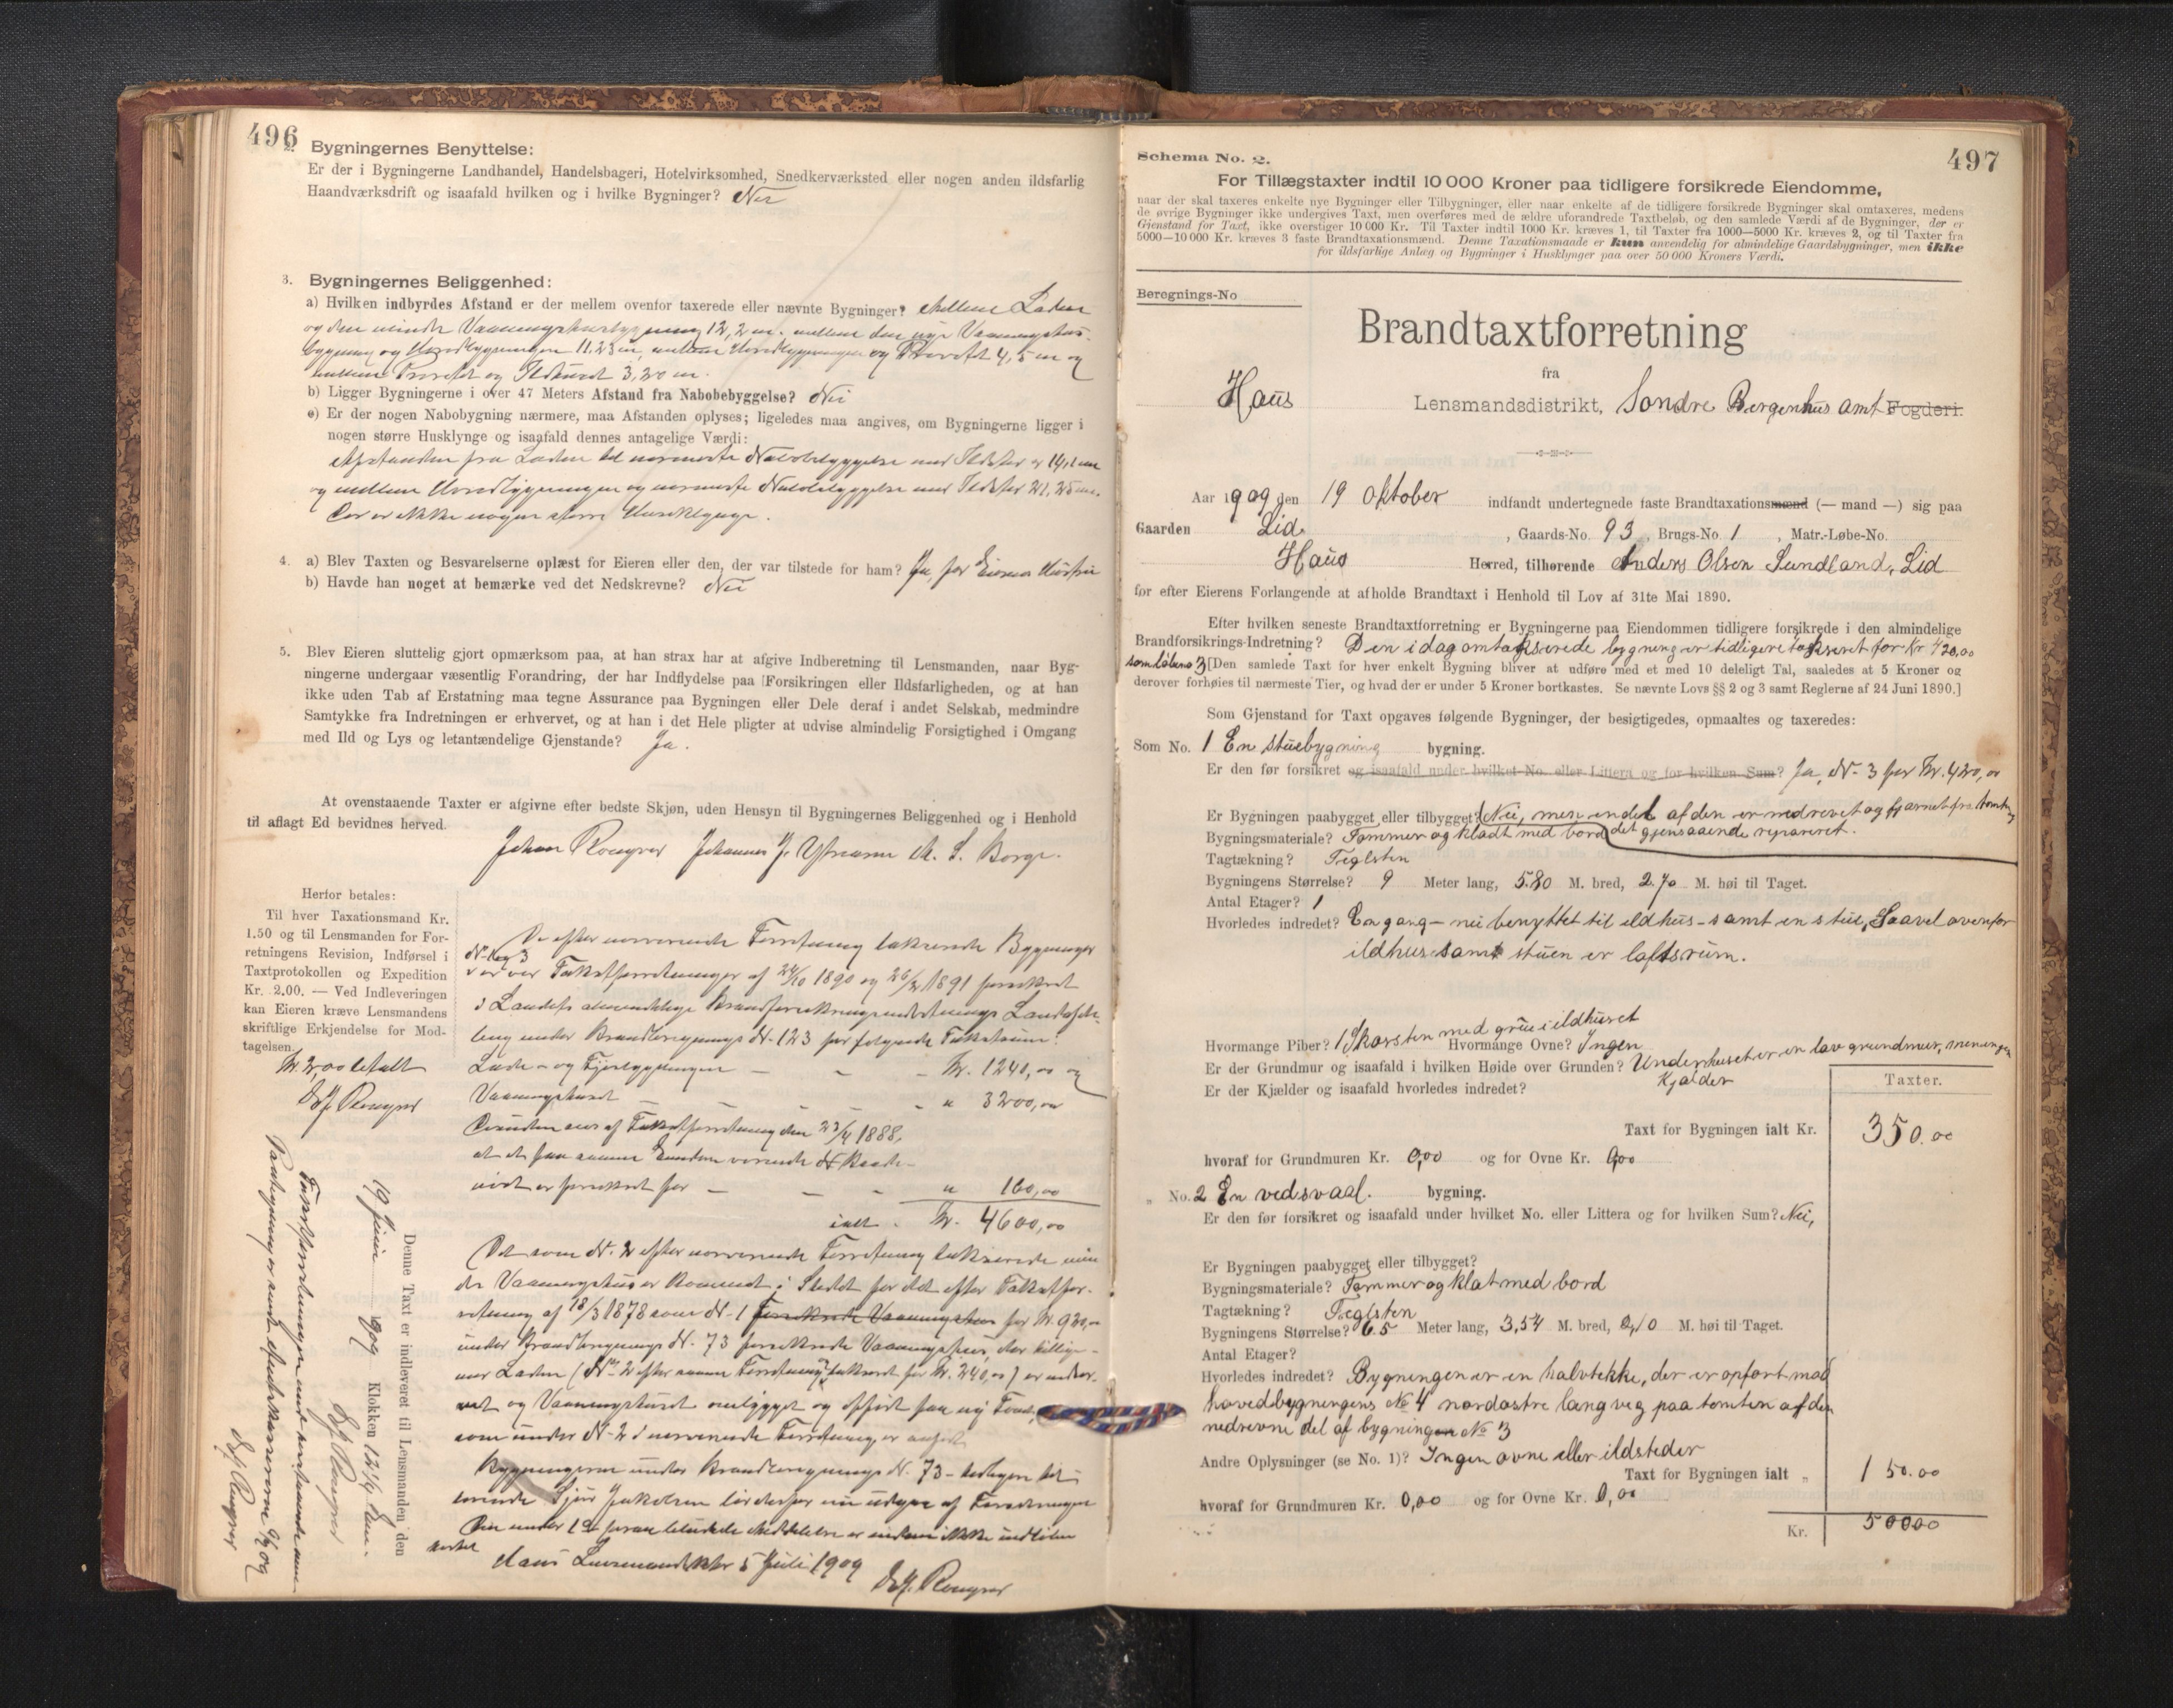 496
2. Bygningernes Benyttelse:
Er der i Bygningerne Landhandel, Handelsbageri, Hotelvirksomhed, Snedkerværksted eller nogen anden ildsfarlig
Haandværksdrift og isaafald hvilken og i hvilke Bygninger? Nei
3. Bygningernes Beliggenhed:
a) Hvilken indbyrdes Afstand er der mellem ovenfor taxerede eller nævnte Bygninger? Mellem Laden
og den mindre Vaaningshusbygning 12,2 m. mellem den nye Vaaningshus-
bygning og Hovedbygningen 11.23 m, mellem Hovedbygningen og 4,5 m og
mellem og Ildhuset 3,20 m.
b) Ligger Bygningerne i over 47 Meters Afstand fra Nabobebyggelse? Nei
c) Er der nogen Nabobygning nærmere, maa Afstanden oplyses; ligeledes maa angives, om Bygningerne ligger i
nogen større Husklynge og isaafald dennes antagelige Værdi:
Afstanden fra Laden til nærmeste Nabobebyggelse med Ildsted er 14,1 m
og mellem Hovedbygningen og nærmeste Nabobebyggelse med Ildsted 21,25 m.
Der er ikke nogen større Husklynge.
4. a) Blev Taxten og Besvarelserne oplæst for Eieren eller den, der var tilstede for ham? Ja, for Eierens Hustru
b) Havde han noget at bemærke ved det Nedskrevne? Nei
5. Blev Eieren sluttelig gjort opmærksom paa, at han strax har at afgive Indberetning til Lensmanden, naar Byg-
ningerne undergaar væsentlig Forandring, der har Indflydelse paa Forsikringen eller Ildsfarligheden, og at han
ikke uden Tab af Erstatning maa tegne Assurance paa Bygningen eller Dele deraf i andet Selskab, medmindre
Samtykke fra Indretningen er erhvervet, og at han i det Hele pligter at udvise almindelig Forsigtighed i Omgang
med Ild og Lys og letantændelige Gjenstande? Ja.
At ovenstaaende Taxter er afgivne efter bedste Skjøn, uden Hensyn til Bygningernes Beliggenhed og i Henhold
til aflagt Ed bevidnes herved.
Johan Johannes J. M. S. Borge.
Herfor betales:
Til hver Taxationsmand Kr.
1.50 og til Lensmanden for For-
retningens Revision, Indførsel i
Taxtprotokollen og Expedition
Kr. 2.00. — Ved Indleveringen
kan Eieren kræve Lensmandens
skriftlige Erkjendelse for Mod-
tagelsen.
Kr. 2,00 betalt
De efter nærværende Forretning takserede Bygninger
No 1 og 3
er ver Takstforretninger af 24/10 1890 og 26/2 1891 forsikret
i Landets almindelige Brandforsikringsindretnings Landafde-
ling under Brandberegnings No 123 for følgende Takstsum:
Lade- og Fjøsbygningen - - - Kr. 1240,00 og
Vaaningshuset - - - - " 3200,00
Desuden sees af Takstforretning den 23/4 1888,
at et paa samme Eiendom værende
er forsikret for - - - " 160,00
ialt. Kr. 4600,00
Det som No. 2 efter nærværende Forretning takserede min-
dre Vaaningshus er kommet i Stedet for det efter Takstfor-
retning af 18/3 1878 som No 1 forsikrede Vaaningshus for Kr. 920,-
under Brandberegnings No. 73 forsikrede Vaaningshus, der tillige-
med Laden (No 2 efter samme Forretning takseret for Kr. 240,00) er nedre-
vet og Vaaningshuset ombygget og opført paa ny Tomt,
som under No. 2 i nærværende Forretning er anført
Bygningerne under Brandberegnings No. 73 - tidligere til-
hørende Sjur Jakobsen bør derfor nu udgaa af Forsikringen
Den under 1ste Meddelelse er endnu ikke indløbet
Haus Lensmandsktr 5 Juli 1909
Denne Taxt er indleveret til Lensmanden den
19 Juni 1909 Klokken 12 1/4 Em.
497
Schema No. 2.
For Tillægstaxter indtil 10 000 Kroner paa tidligere forsikrede Eiendomme,
naar der skal taxeres enkelte nye Bygninger eller Tilbygninger, eller naar enkelte af de tidligere forsikrede Bygninger skal omtaxeres, medens
de øvrige Bygninger ikke undergives Taxt, men overføres med de ældre uforandrede Taxtbeløb, og den samlede Værdi af de Bygninger, der er
Gjenstand for Taxt, ikke overstiger 10 000 Kr. Til Taxter indtil 1000 Kr. kræves 1, til Taxter fra 1000—5000 Kr. kræves 2, og til Taxter fra
5000—10 000 Kr. kræves 3 faste Brandtaxationsmænd. Denne Taxationsmaade er kun anvendelig for almindelige Gaardsbygninger, men ikke
for ildsfarlige Anlæg og Bygninger i Husklynger paa over 50 000 Kroners Værdi.
Beregnings-No
Brandtaxtforretning
fra
Haus Lensmandsdistrikt, Søndre Bergenhus amt Fogderi.
Aar 1909 den 19 Oktober indfandt undertegnede faste Brandtaxationsmænd (— mand —) sig paa
Gaarden Lid, Gaards-No. 93, Brugs-No. 1, Matr.-Løbe-No.
Haus Herred, tilhørende Anders Olsen Sundland, Lid
for efter Eierens Forlangende at afholde Brandtaxt i Henhold til Lov af 31te Mai 1890.
Efter hvilken seneste Brandtaxtforretning er Bygningerne paa Eiendommen tidligere forsikrede i den almindelige
Brandforsikrings-Indretning? Den idag omtakserede bygning er tidligere takseret for Kr 420,00
som løbeno 3 [Den samlede Taxt for hver enkelt Bygning bliver at udføre med et med 10 deleligt Tal, saaledes at 5 Kroner og
derover forhøies til nærmeste Tier, og hvad der er under 5 Kroner bortkastes. Se nævnte Lovs §§ 2 og 3 samt Reglerne af 24 Juni 1890.]
Som Gjenstand for Taxt opgaves følgende Bygninger, der besigtigedes, opmaaltes og taxeredes:
Som No. 1 En stuebygning bygning.
Er den før forsikret og isaafald under hvilket No. eller Littera og for hvilken Sum? Ja, No 3 for Kr. 420,00
Er Bygningen paabygget eller tilbygget? Nei, men endel af den er nedrevet og fjernet fra tomten
Bygningsmateriale? Tømmer og klædt med bord det gjenstaaende repareret.
Tagtækning? Teglsten
Bygningens Størrelse? 9 Meter lang, 5.80 M. bred, 2.70 M. høi til Taget.
Antal Etager? 1
Hvorledes indredet? En gang - nu benyttet til ildhus - samt en stue, Saavel ovenfor
ildhus samt stuen er loftsrum.
Hvormange Piber? 1 Skorsten med grue i ildhuset Hvormange Ovne? Ingen
Er der Grundmur og isaafald i hvilken Høide over Grunden? Under huset er en lav grundmur, men ingen
Er der Kjælder og isaafald hvorledes indredet? Kjælder
Taxter.
Taxt for Bygningen ialt Kr. 350.00
hvoraf for Grundmuren Kr. 0,00 og for Ovne Kr. 0,00
" No. 2 En vedsvaal. bygning.
Er den før forsikret og isaafald under hvilket No. eller Littera og for hvilken Sum? Nei,
Er Bygningen paabygget eller tilbygget?
Bygningsmateriale? Tømmer og klæt med bord
Tagtækning? Teglsten
Bygningens Størrelse? 6.5 Meter lang, 3,54 M. bred, 2,10 M. høi til Taget.
Antal Etager?
Hvorledes indredet? Bygningen er en halvtekke, der er opført mod
hovedbygningens No 4 nordøstre langveg paa tomten af den
nedrevne del af bygningen No 3
Andre Oplysninger (se No. 1)? Ingen ovne eller ildsteder
Taxt for Bygningen ialt " 150.00
hvoraf for Grundmuren Kr. 0,00 og for Ovne Kr. 0,00
Kr. 50000